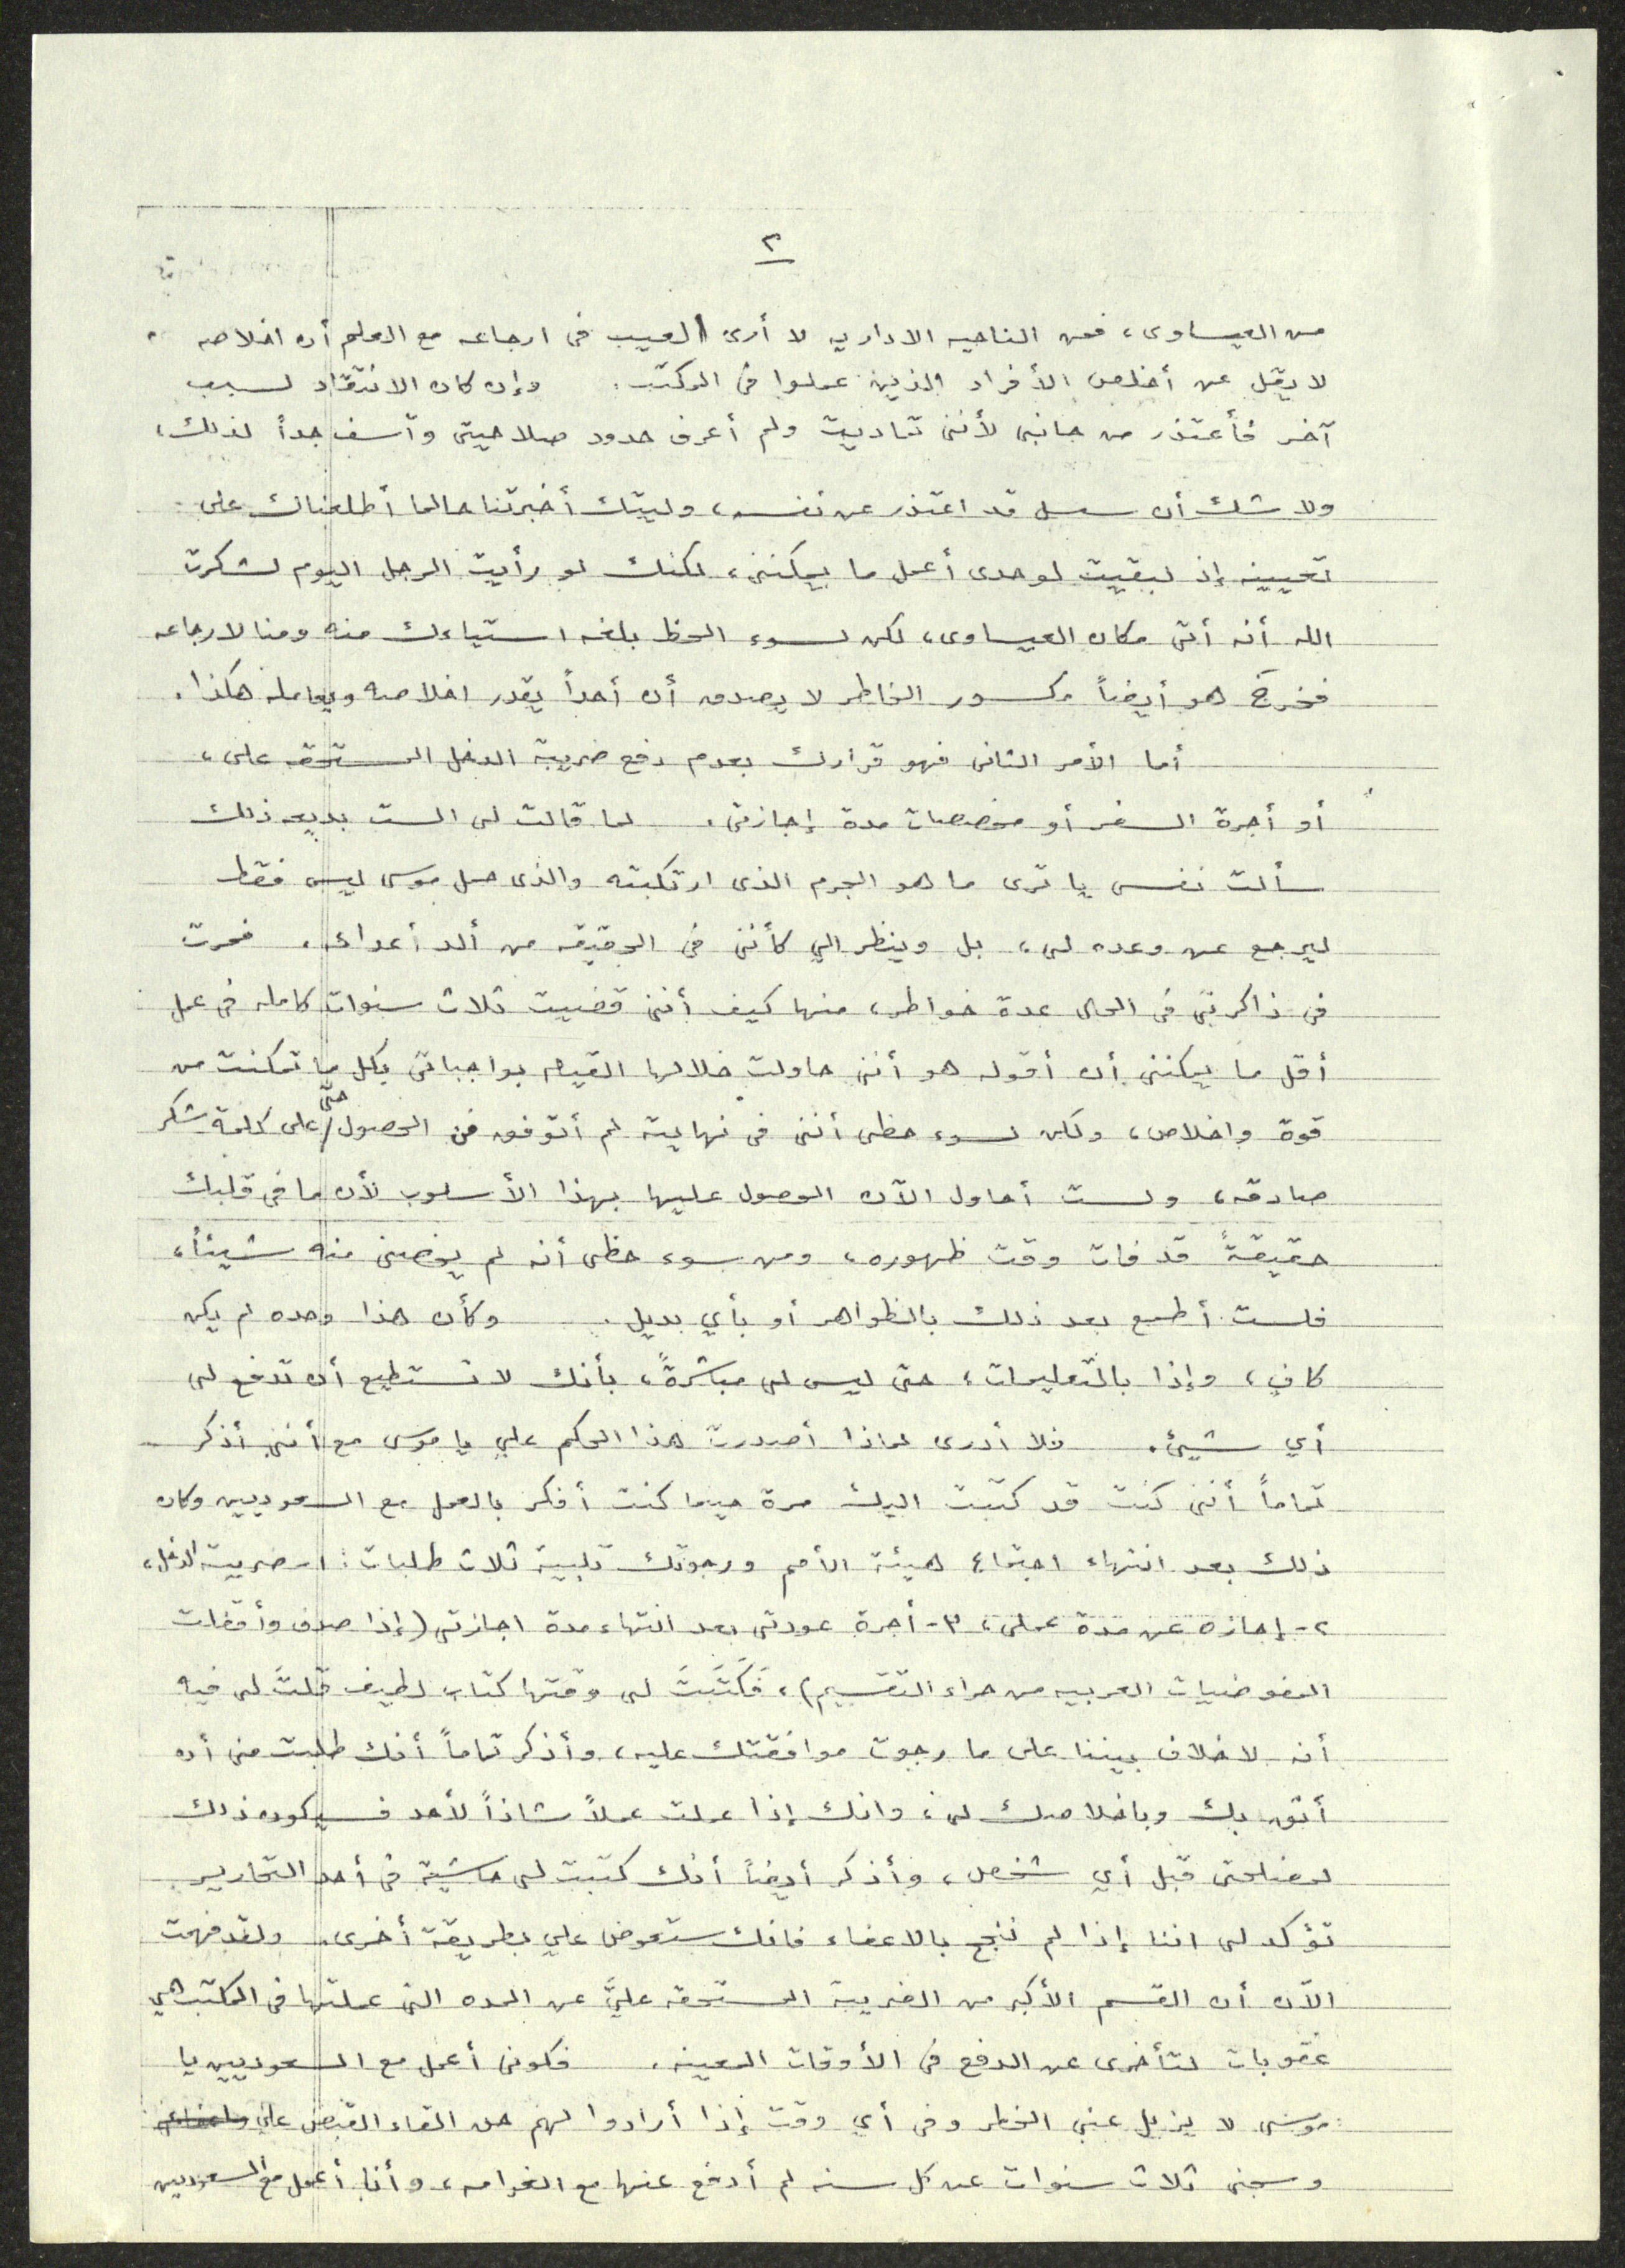 ٢
من العيساوى، فمن الناحيه الاداريه لا أرى العيب فى ارجاعه مع العلم أن اخلاصه
لا يقل عن أخلص الأفراد الذين عملوا فى المكتب. وإن كان الانتقاد لسبب
آخر فأعتذر من جانبى لأننى تماديت ولم أعرف حدود صلاحيتى وآسف جداً لذلك،
ولا شك أن سسل قد اعتذر عن نفسه، وليتك أخبرتنا حالما أطلعناك على
تعيينه إذ لبقيت لوحدى أعمل ما يمكننى، لكنك لو رأيت الرجل اليوم لشكرت
الله أنه أتى مكان العيساوى، لكن لسوء الحظ بلغه استياءك منه ومنا لارجاعه
فخرج هو أيضاً مكسور الخاطر لا يصدق أن أحداً يقدر اخلاصه ويعامله هكذا.
أما الأمر الثانى فهو قرارك بعدم دفع ضريبة الدخل المستحقه على،
أو أجرة السفر أو مخصصات مدة إجازتى. لما قالت لى الست بديعه ذلك
سألت نفسى يا ترى ما هو الجرم الذى ارتكبته والذى حمل موسى ليس فقط
ليرجع عن وعده لى، بل وينظر الي كأننى فى الحقيقه من ألد أعداءه. فمرت
فى ذاكرتى فى الحال عدة خواطر، منها كيف أننى قضيت ثلاث سنوات كامله فى عمل
أقل ما يمكننى أن أقوله هو أننى حاولت خلالها القيام بواجباتى بكل ما تمكنت من
قوة واخلاص، ولكن لسوء حظى أننى فى نهايته لم أتوفق فى الحصول حتى على كلمة شكر
صادقه، ولست أحاول الآن الوصول عليها بهذا الأسلوب لأن ما فى قلبك
حقيقةً قد فات وقت ظهوره، ومن سوء حظى أنه لم يخصنى منه شيئاً،
فلست أطمع بعد ذلك بالظواهر أو بأي بديل. وكأن هذا وحده لم يكن
كافٍ، وإذا بالتعليمات، حتى ليس لى مباشرةً، بأنك لا تستطيع أن تدفع لى
أي شيئ. فلا أدرى لماذا أصدرت هذا الحكم علي يا موسى مع أننى أذكر
تماماً أننى كنت قد كتبت اليك مرة حينما كنت أفكر بالعمل مع السعوديين وكان
ذلك بعد انتهاء اجتماع هيئة الأمم ورجوتك تلبية ثلاث طلبات: ١- ضريبة الدخل،
٢- إجازه عن مدة عملى، ٣- أجرة عودتى بعد انتهاء مدة اجازتى (إذا صدف وأقفلت
المفوضيات العربيه من جراء التقسيم)، فَكَتَبَتَ لى وقتها كتاب لطيف قلتَ لى فيه
أنه لا خلاف بيننا على ما رجوت موافقتك عليه، وأذكر تماماً أنك طلبت منى أن
أثق بك وباخلاصك لى، وانك إذا عملت عملاً شاذاً لأحد فسيكون ذلك
لمصلحتى قبل أي شخص، وأذكر أيضاً أنك كتبت لى حاشية فى أحد التحارير
تؤكد لى اننا إذا لم ننجح بالاعفاء فانك ستعوض علي بطريقة أخرى. ولقد فهمت
الآن أن القسم الأكبر من الضريبة المستحقه عليَّ عن المده التى عملتها فى المكتب هي
عقوبات لتأخرى عن الدفع فى الأوقات المعينه. فكونى أعمل مع السعوديين يا
موسى لا يزيل عني الخطر وفى أي وقت إذا أرادوا لهم حق القاء القبض على
وسجنى ثلاث سنوات عن كل سنه لم أدفع عنها مع الغرامه، وأنا أعمل مع السعوديين